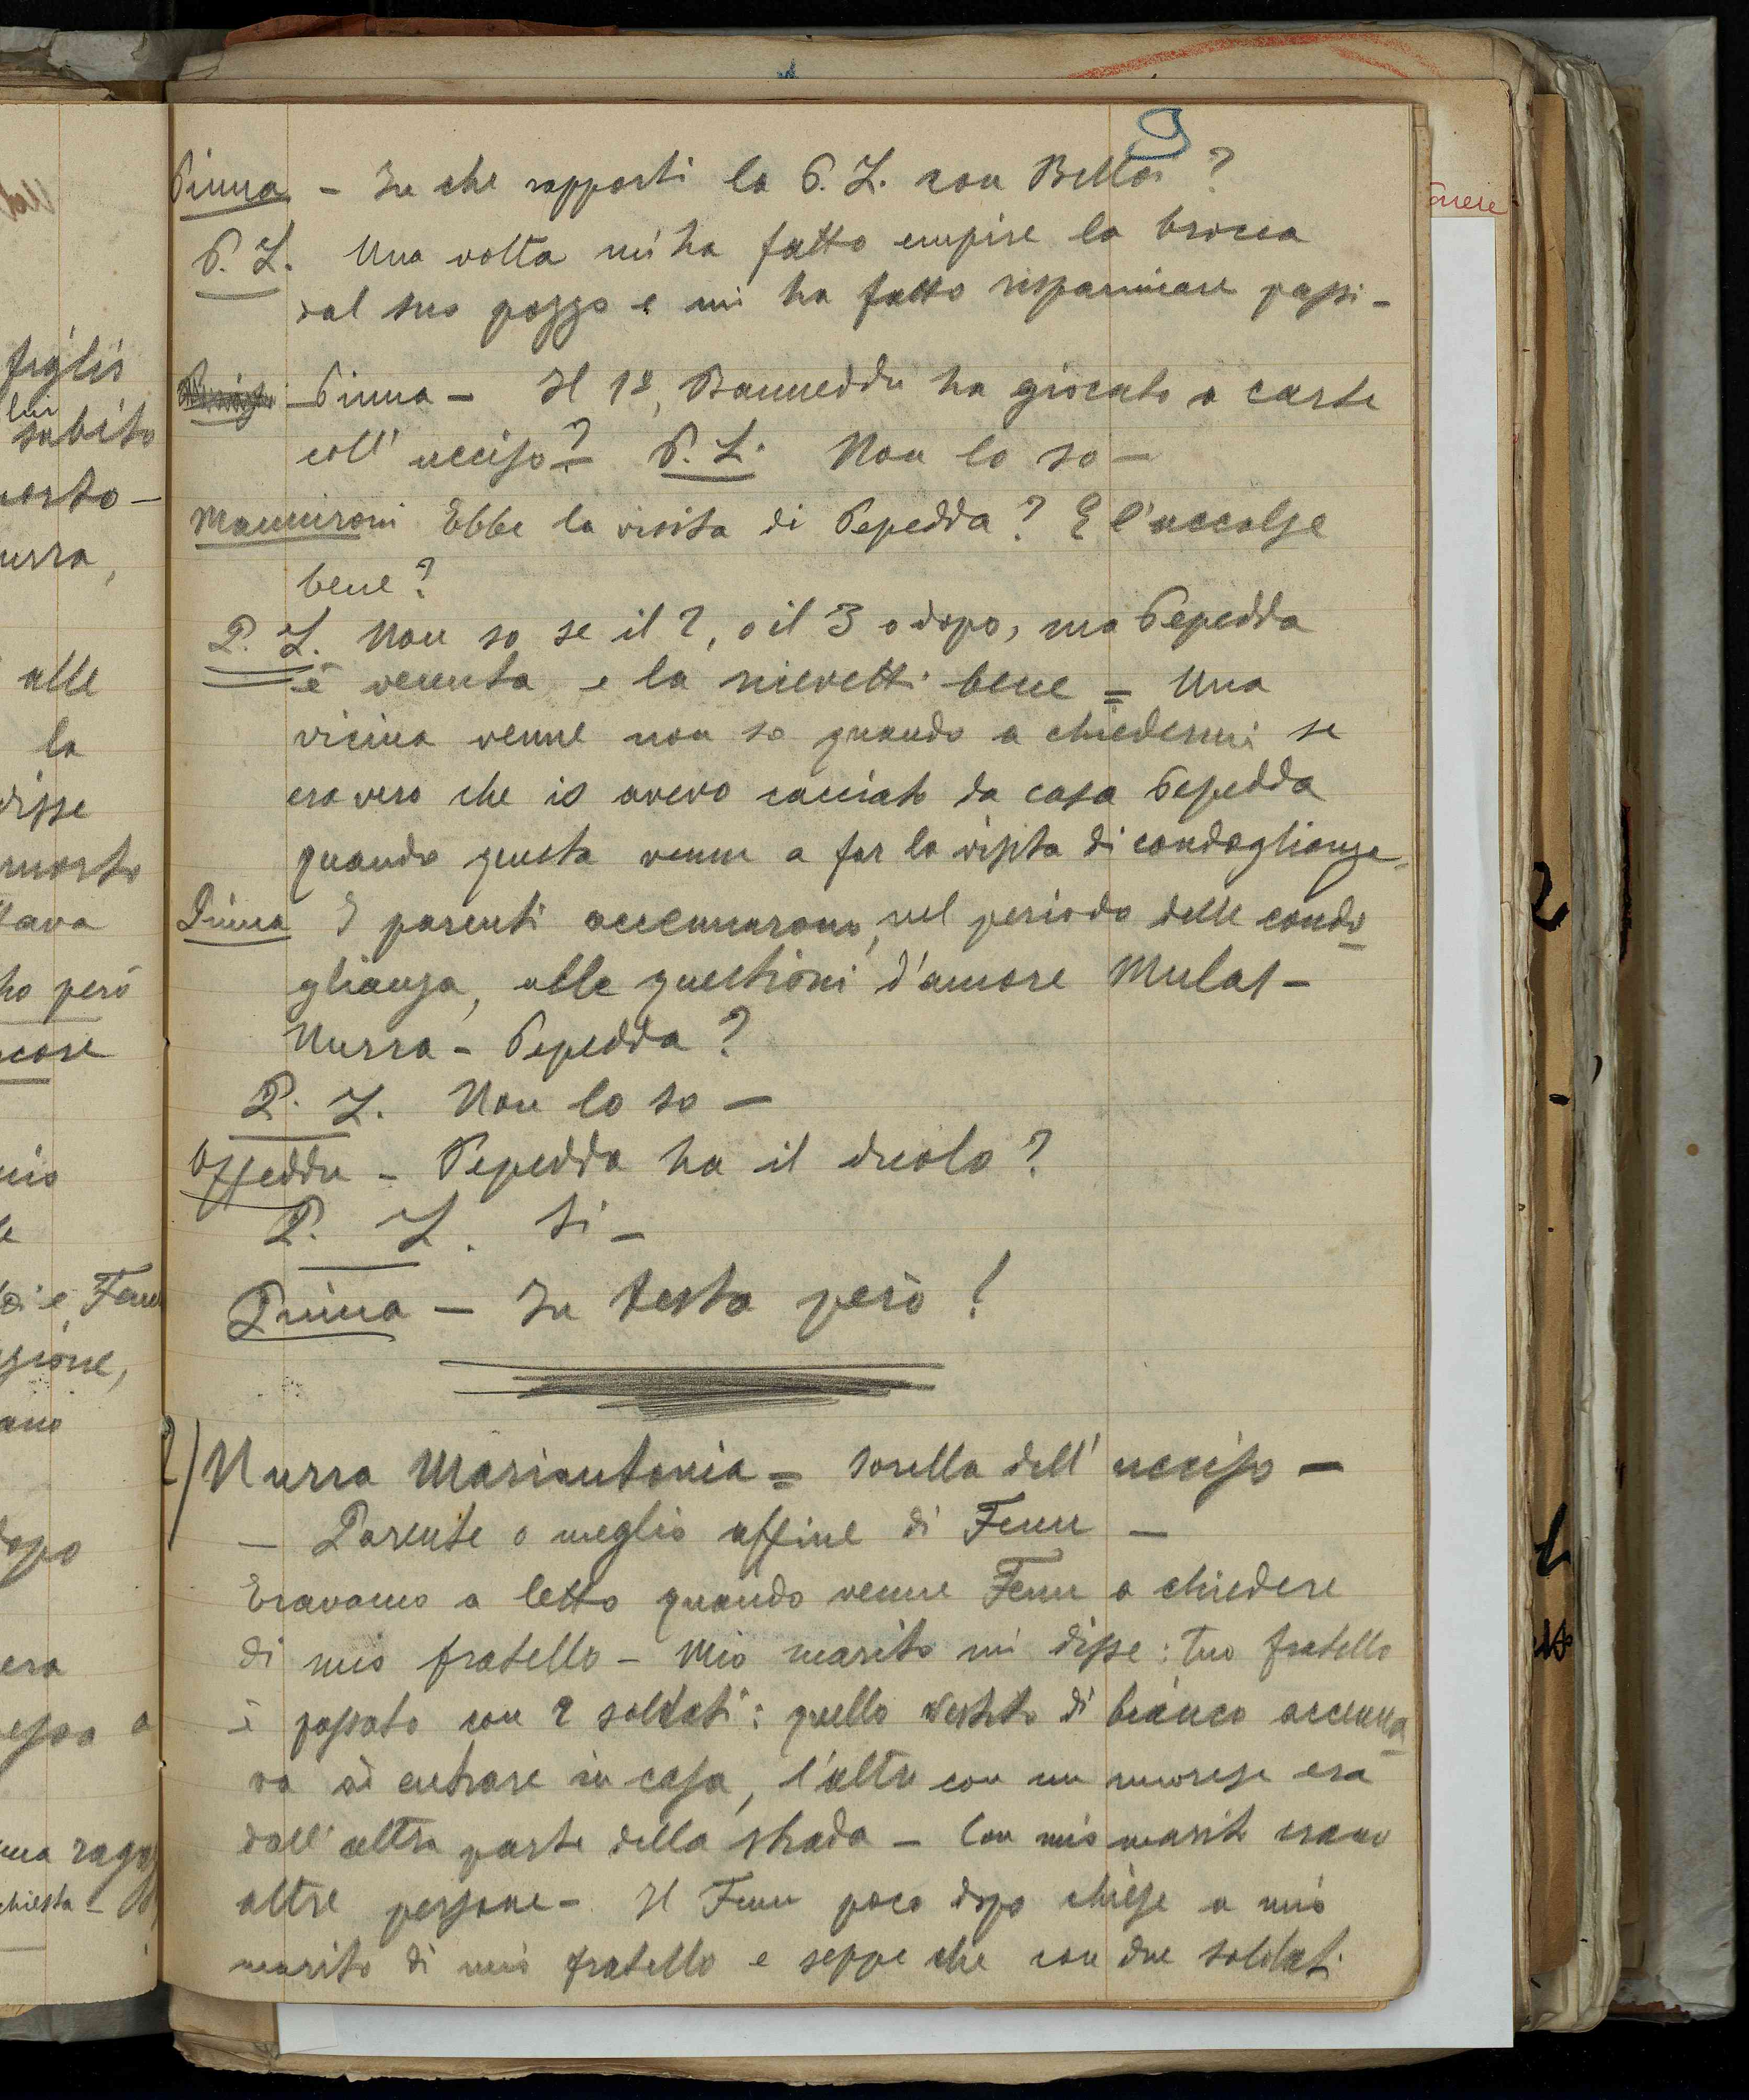 9
Pinna - In che rapporti la P. L. con Bellai?
P. L. Una volta mi ha fatto empire la brocca
dal suo pozzo e mi ha fatto risparmiare passi -
Pinna - Il 1º, Banneddu ha giocato a carte
coll' ucciso? - P. L. Non lo so -
Manconi Ebbe la visita di Pepedda? E l'accolse
bene?
P. L. Non so se il 2, o il 3 o dopo, ma Pepedda
è venuta e la ricevetti bene = Una
vicina venne non so quando a chiedermi se
era vero che io avevo cacciato da casa Pepedda
quando questa venne a far la visita di condoglianze.
Pinna I parenti accennarono, nel periodo delle condo
glianza, alle questioni d'amore Mulas -
Nurra - Pepedda?
P. L. Non lo so -
Offeddu - Pepedda ha il duolo?
P. L. Si -
Pinna - In testa però!
2) Nurra Mariantonia = sorella dell' ucciso -
- Parente o meglio affine di Fenu -
Eravamo a letto quando venne Fenu a chiedere
di mio fratello - Mio marito mi disse: tuo fratello
è passato con 2 soldati: quello vestito di bianco accenna
va ad entrare in casa, l'altro con un nuorese era
dall' altra parte della strada - Con mio marito erano
altre persone - Il Fenu poco dopo chiese a mio
marito di mio fratello e seppe che con due soldati